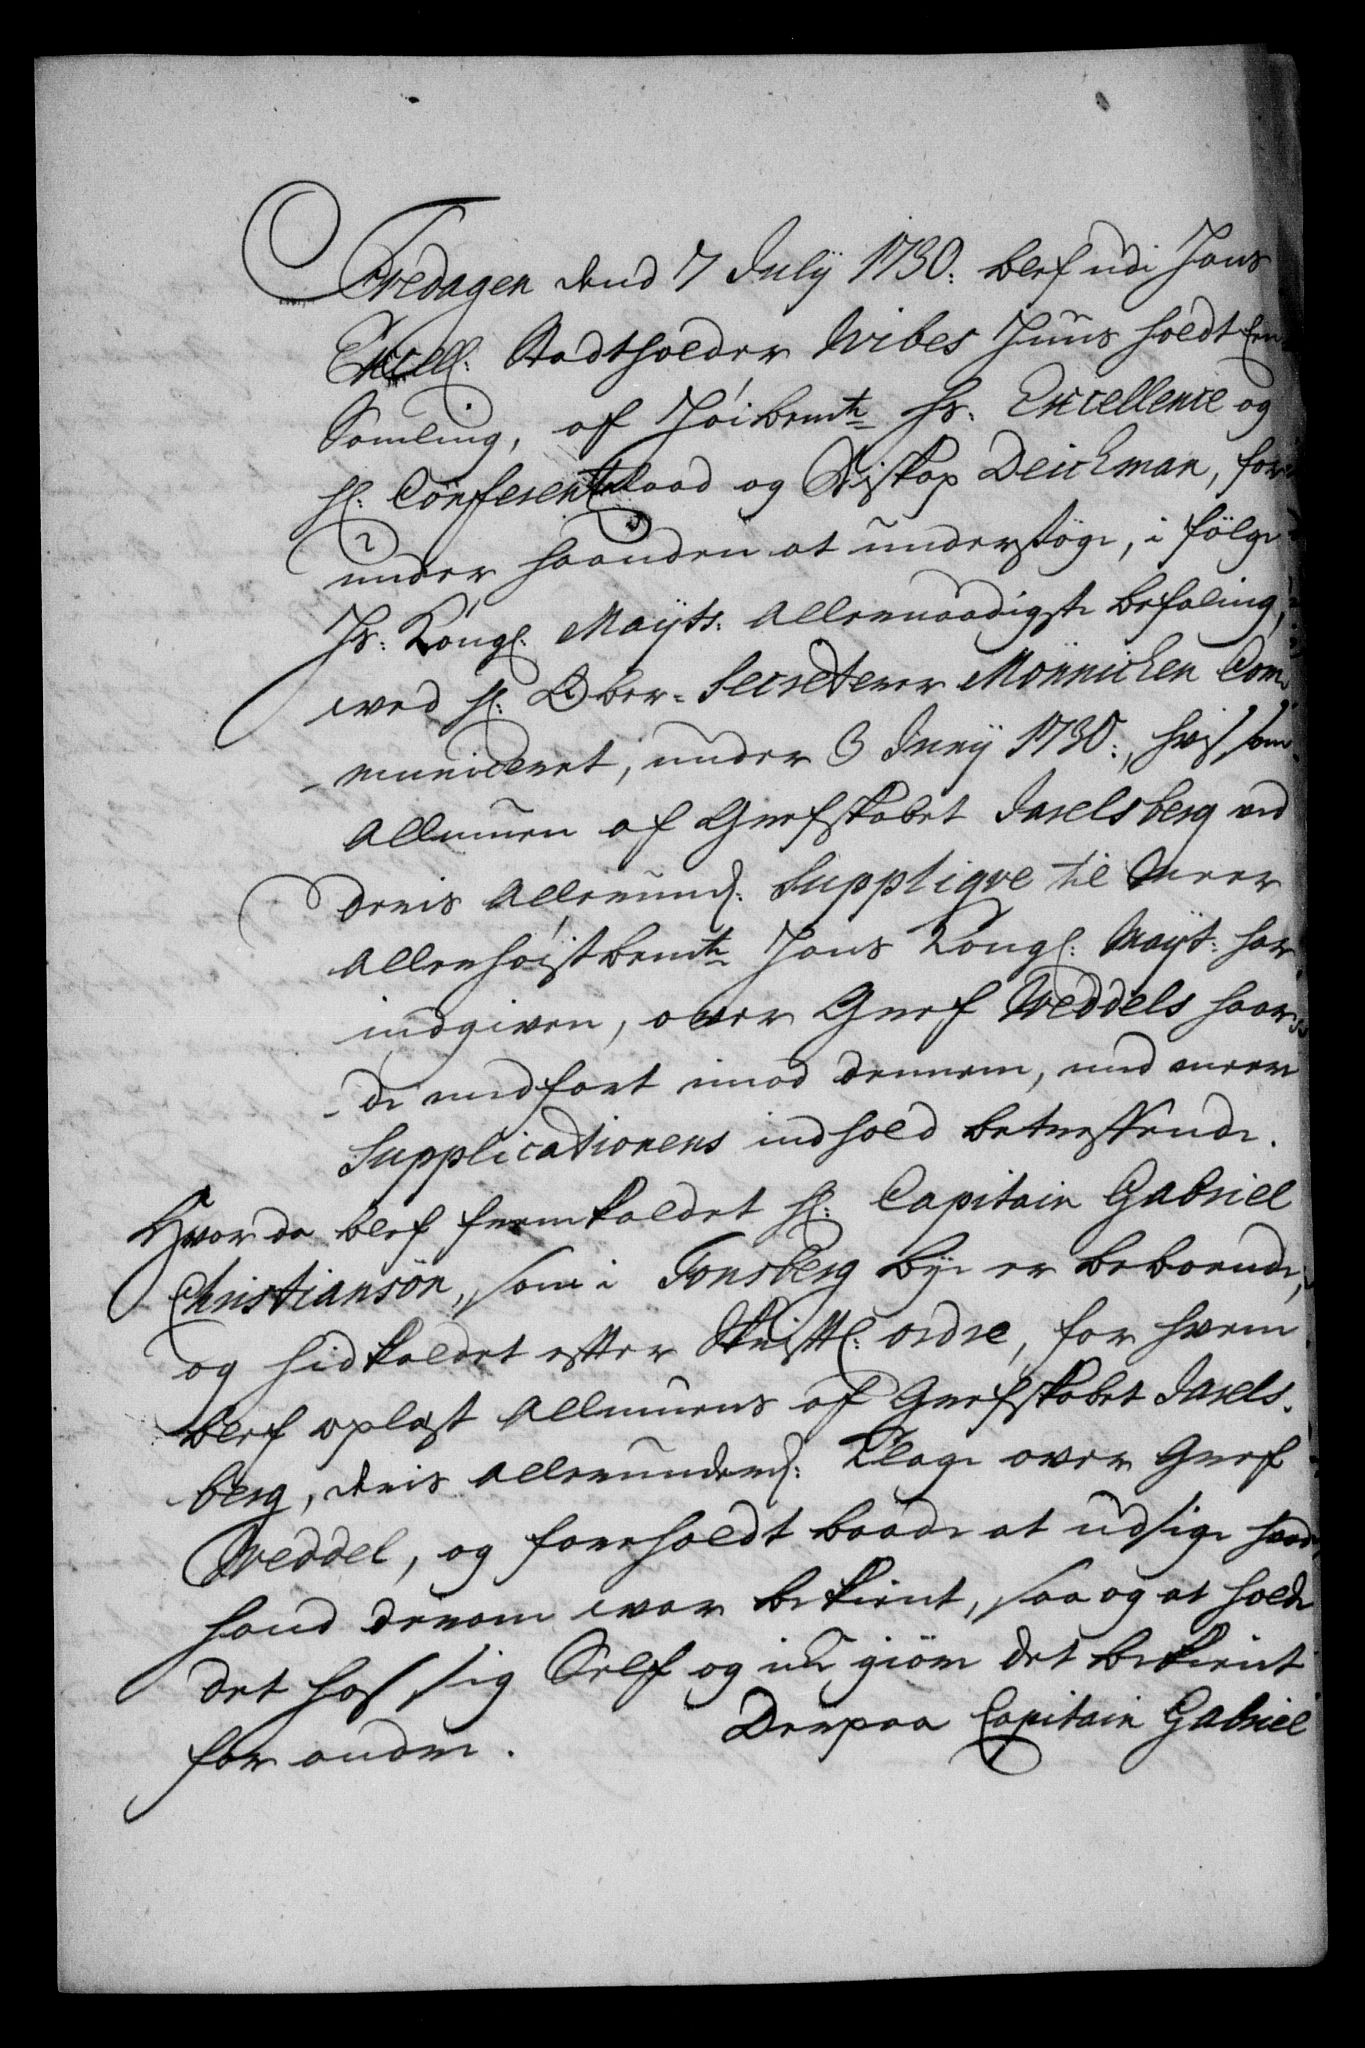 Fredagen dend 7 July 1730. blef udi Hans
Excell. Stadtholder Wibes Huus holdt en
Samling, af Høibemte Hr. Excellence og
Hr. Conferentzraad og Biskop Deichman, for
under haanden at undersøge, i følge
Hs. Kongl. Mayts. allernaadigste befaling,
med Hr. Ober-Secreterer Mönnichen Com-
municeret, under 3 Juny 1730., hvis som
Allmuen af Grefskabet Jarlsberg ved
deris allerund. Supplique til
Allerhøistbemte Hans Kongl. Mayt. har
indgiven, over Gref Weddels haar-
de medfart imod dennem, med meere
Supplicationens indhold betreffende.
Hvor da blef fremkaldet Hr. Capitain Gabriel
Christiansøn, som i Tonsberg bye er boende,
og hidkaldet efter Skriftl. ordre, for hvem
blef oplæst Allmuens af Grefskabet Jarls-
berg, deris allerunderd. Klage over Gref
Weddel, og foreholdt baade at udsige hvad
hand derom var bekient, saa og at holde
det hos sig Self og icke giøre det bekient
for andre. Derpaa Capitain Gabriel